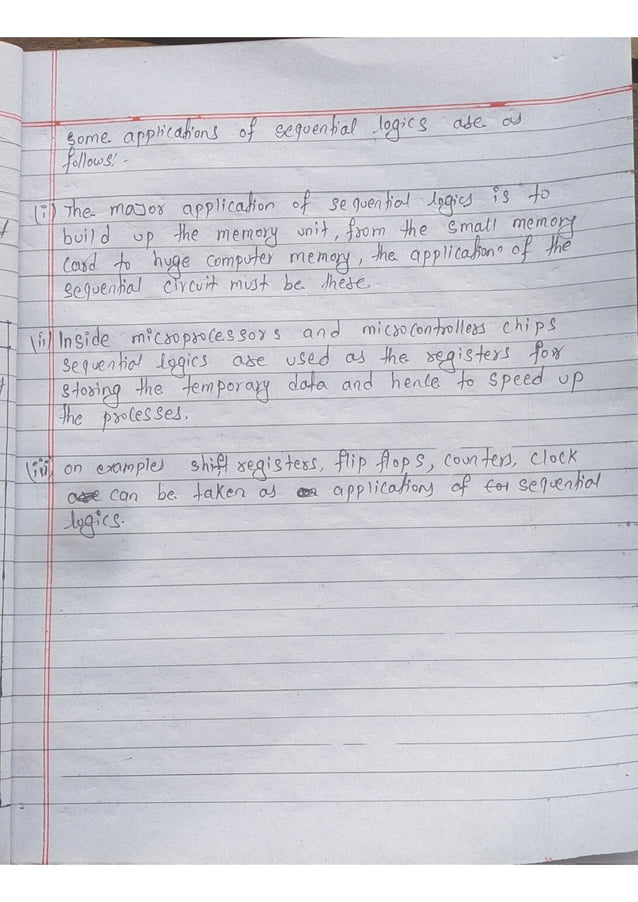 Some applications of sequential logics are as
follows:-
(i) The major application of sequential logics is to
build up the memory unit, from the small memory
card to huge computer memory, the applications of the
sequential circuit must be there.
(ii) Inside microprocessors and microcontrollers chips
sequential logics are used as the registers for
storing the temporary data and hence to speed up
the processes.
(iii) on examples shift registers, flip flops, counters, clock
can be taken as applications of sequential
logics.